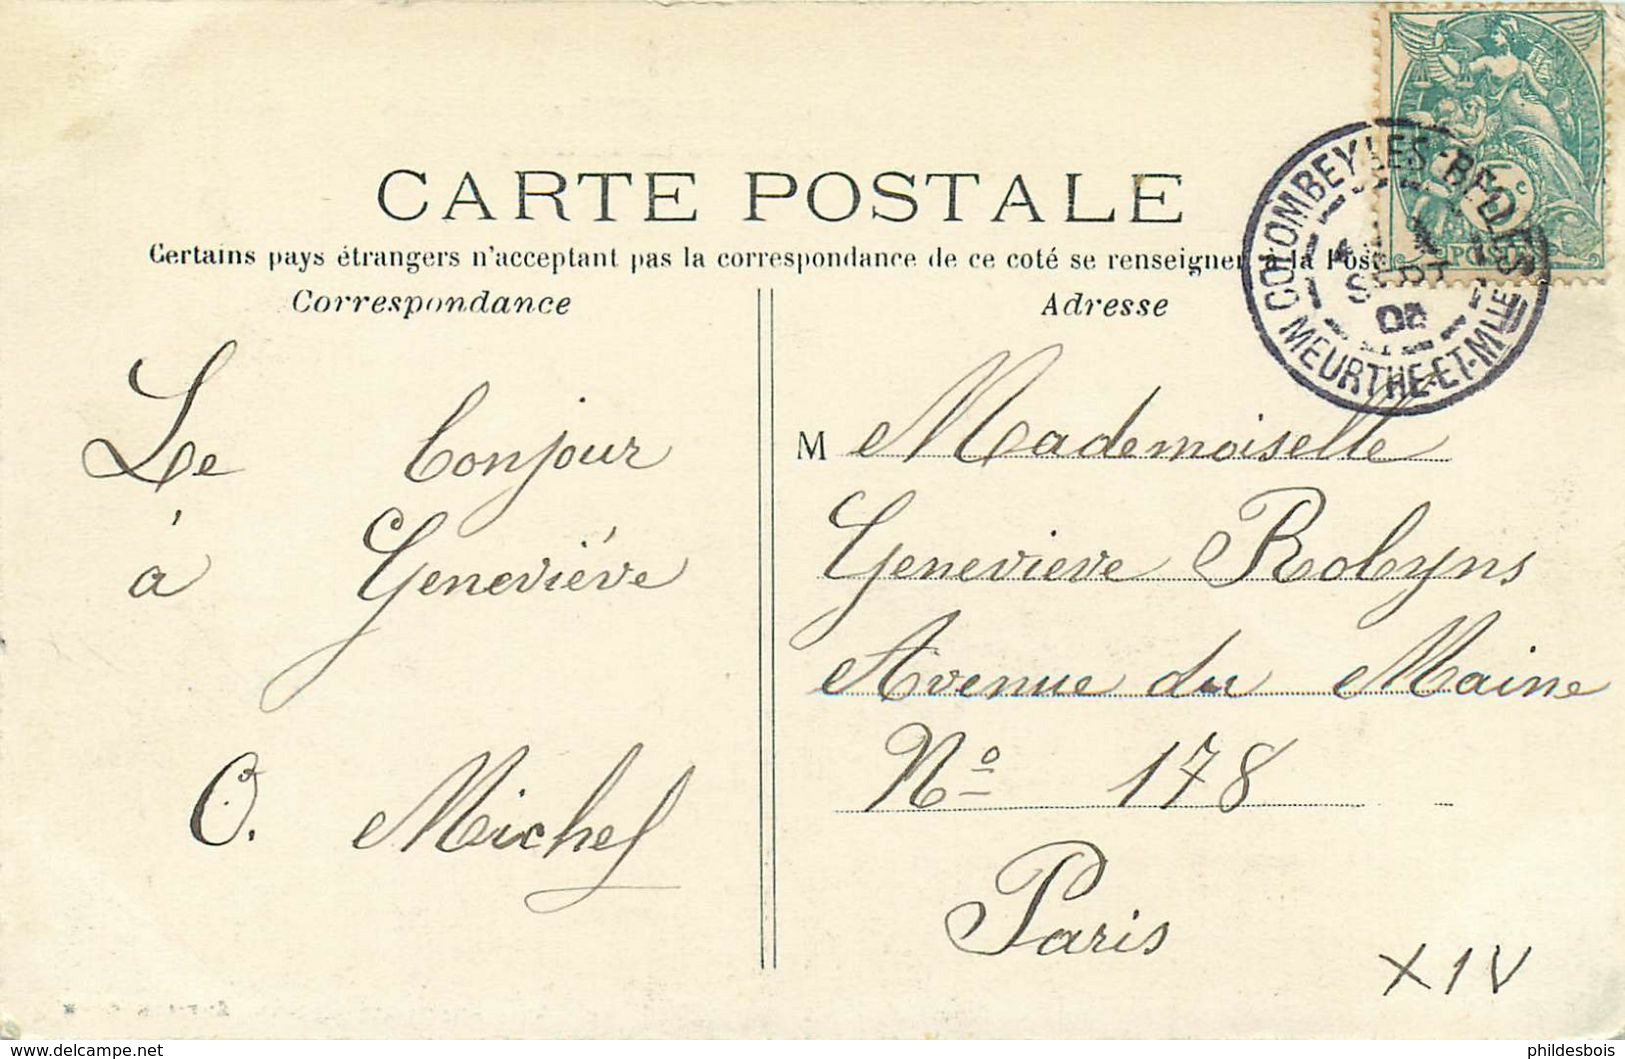 CARTE POSTALE
Certains pays étrangers n'acceptant pas la correspondance de ce coté se renseigner à la Poste
Correspondance
Adresse
COLOMBEY-LES-BELLES
MEURTHE-ET-MLLE
SEPT
5c
POSTES
Le bonjour
à Geneviève
O. Michel
M Mademoiselle
Genevieve Robyns
Avenue du Maine
Nº 178
Paris
XIV
delcampe.net
phildesbois